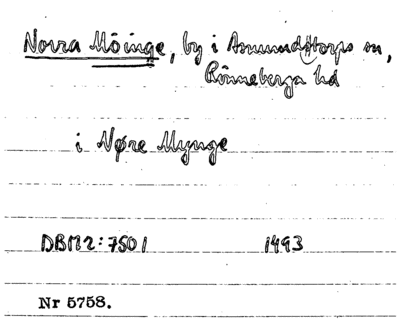 Norra Möinge, by i Asmundstorps sn,
Rönneberga hd
i Nøre Mynge
DBM2:7501 1493
Nr 5758.